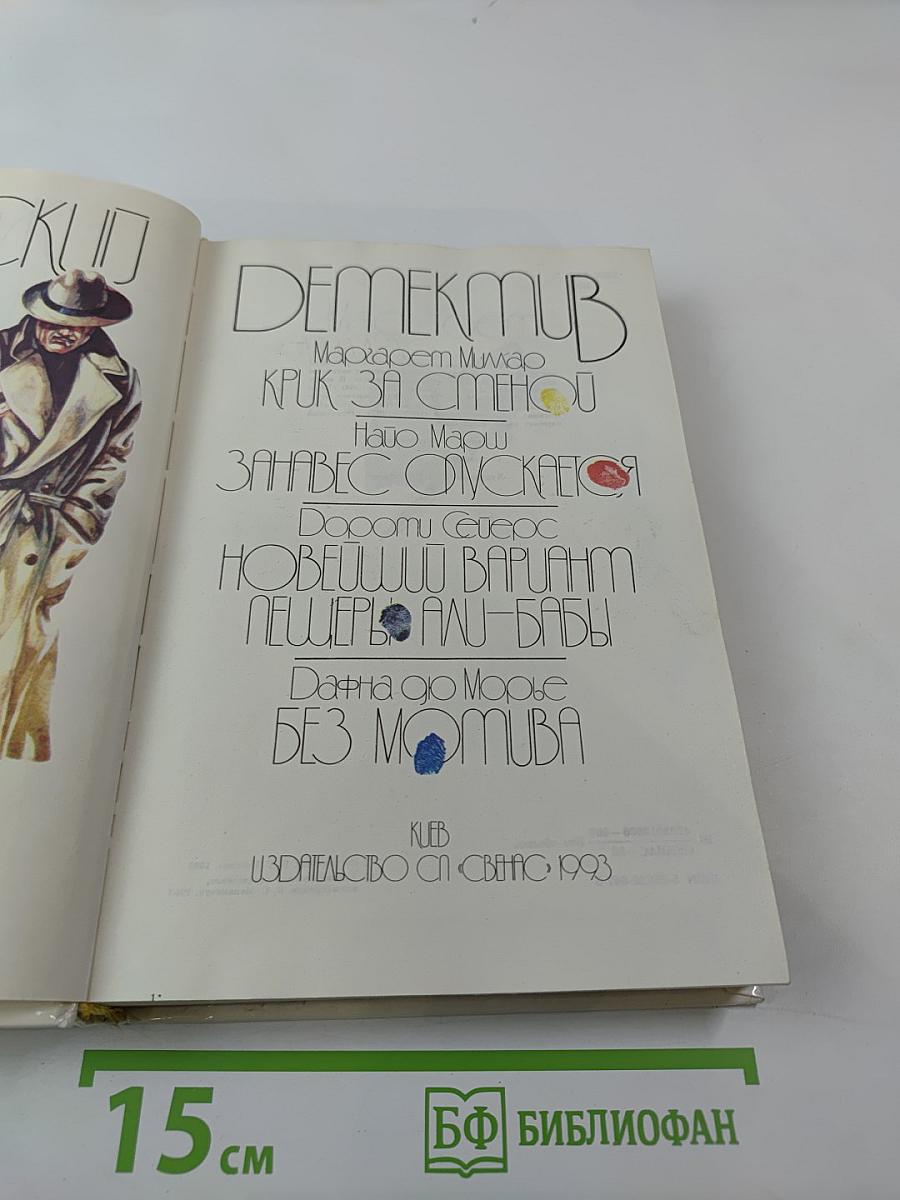 ский
Детектив
Маргарет Миллар
КРИК ЗА СТЕНОЙ
Найо Марш
ЗАНАВЕС ОПУСКАЕТСЯ
Дороти Сейерс
НОВЕЙШИЙ ВАРИАНТ
ПЕЩЕРЫ АЛИ-БАБЫ
Дафна дю Морье
БЕЗ МОТИВА
КИЕВ
ИЗДАТЕЛЬСТВО СП «СВЕНАС» 1993
15 см
БФ БИБЛИОФАН